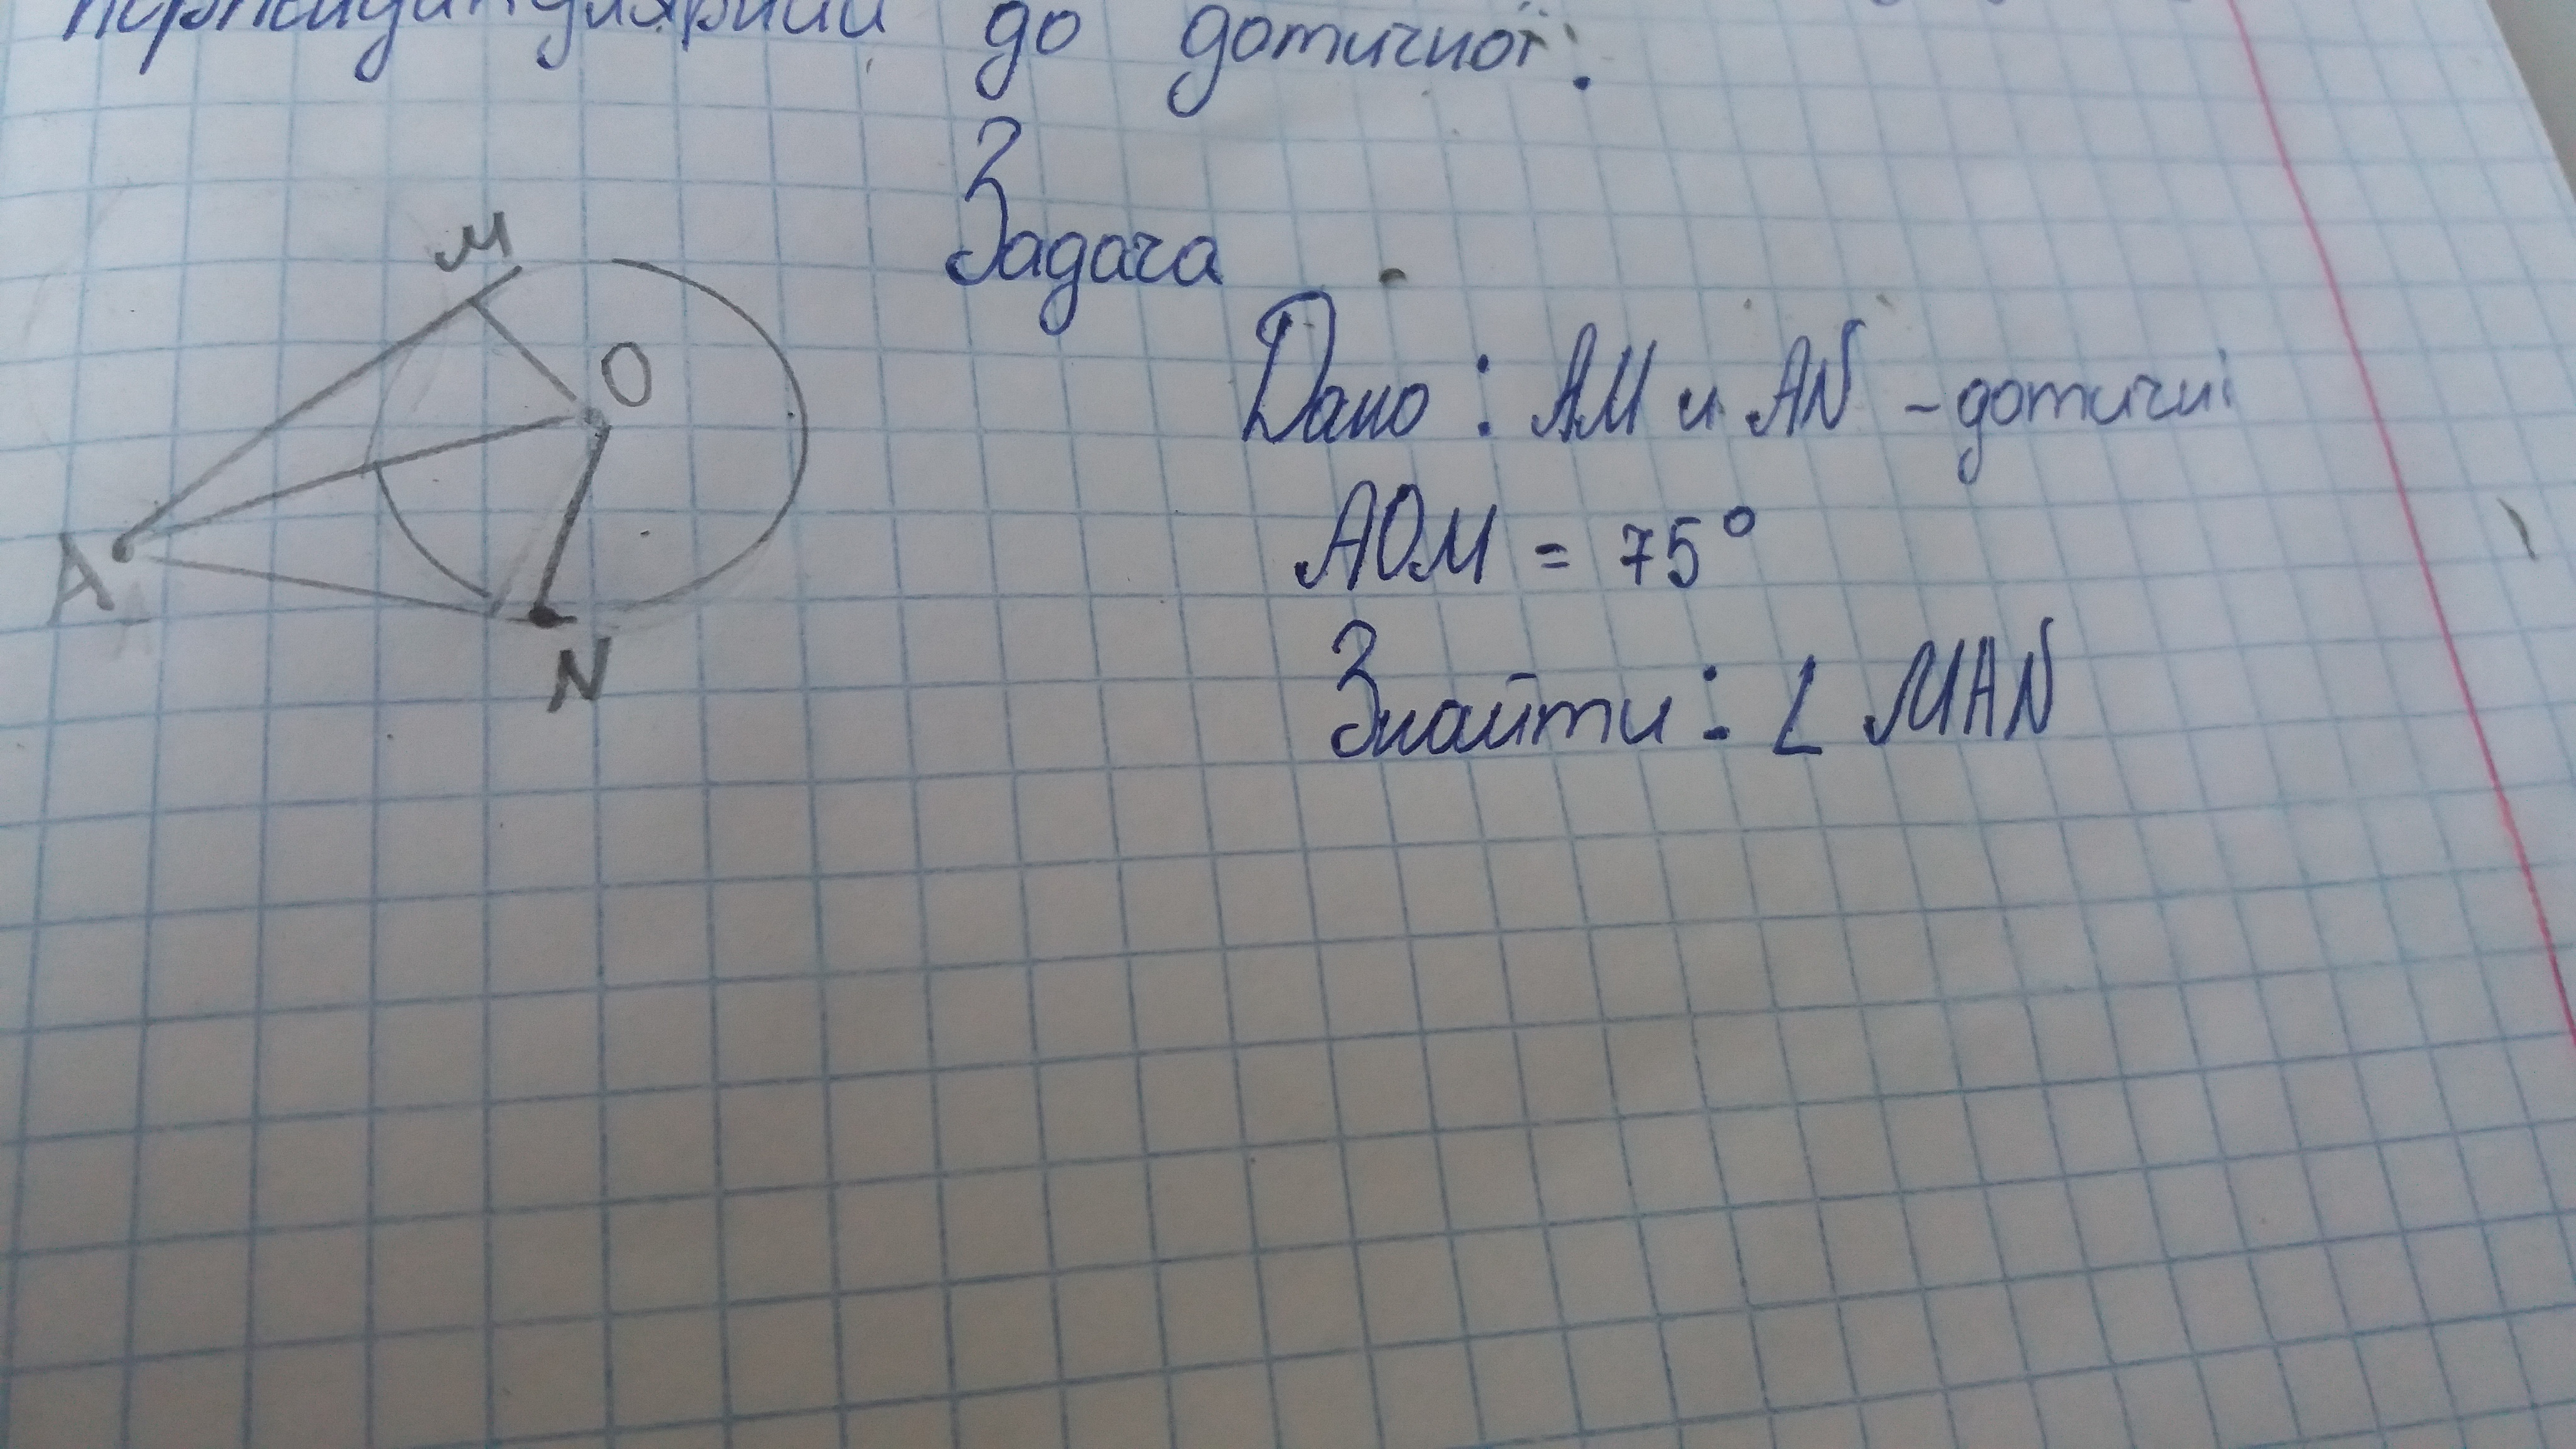 перпендикулярний до дотичної.
Задача
M
O
A
N
Дано: AM и AN - дотичні
AOM = 75°
Знайти: ∠ MAN